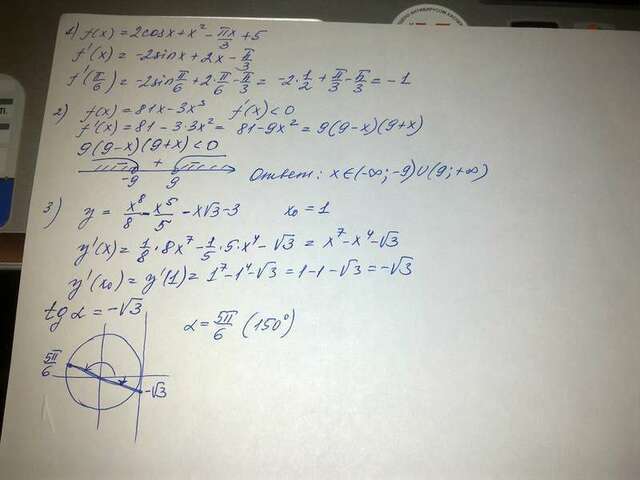 1) f(x) = 2cosx + x² - πx/3 + 5
f'(x) = -2sinx + 2x - π/3
f'(π/6) = -2sin π/6 + 2·π/6 - π/3 = -2·1/2 + π/3 - π/3 = -1
2) f(x) = 81x - 3x³ f'(x) < 0
f'(x) = 81 - 3·3x² = 81 - 9x² = 9(9-x)(9+x)
9(9-x)(9+x) < 0
- + -
-9 9
Ответ: x∈(-∞; -9)∪(9; +∞)
3) y = x⁸/8 - x⁵/5 - x√3 - 3 x₀ = 1
y'(x) = 1/8 · 8x⁷ - 1/5 · 5·x⁴ - √3 = x⁷ - x⁴ - √3
y'(x₀) = y'(1) = 1⁷ - 1⁴ - √3 = 1 - 1 - √3 = -√3
tg α = -√3
α = 5π/6 (150°)
5π/6
-√3